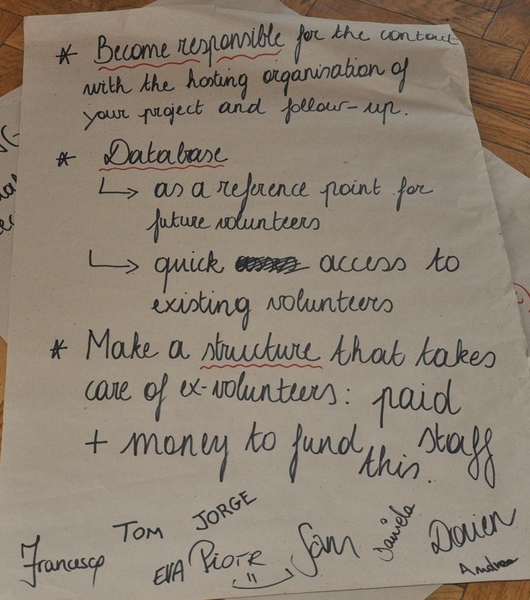 * Become responsible for the contact
with the hosting organisation of
your project and follow-up.
* Database
↳ as a reference point for
future volunteers
↳ quick access to
existing volunteers
* Make a structure that takes
care of ex-volunteers: paid
+ money to fund staff
this.
Francesco TOM JORGE
EVA PIOTR Sam Daniela Dorien
Andrea